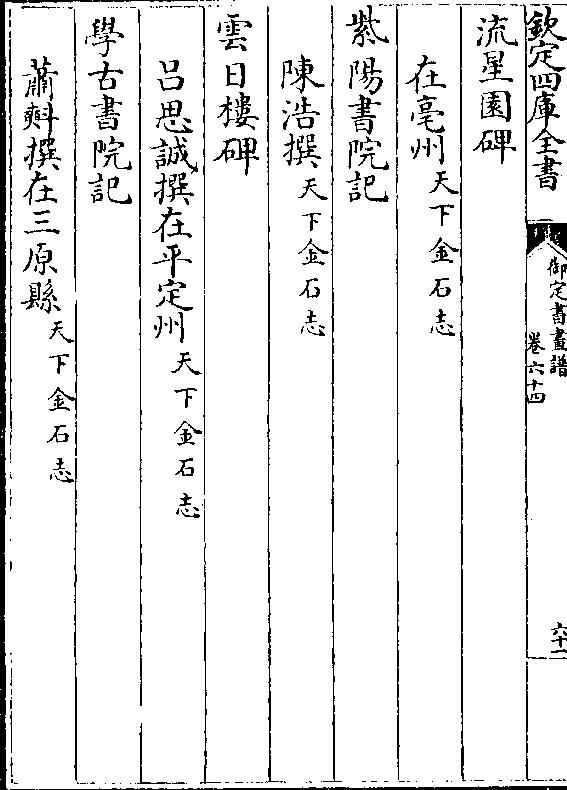 欽定四庫全書
御定書畫譜
卷六十四
六十二
流星園碑
在亳州天下金石志
紫陽書院記
陳浩撰天下金石志
雲日樓碑
呂思誠撰在平定州天下金石志
學古書院記
蕭㪺撰在三原縣天下金石志